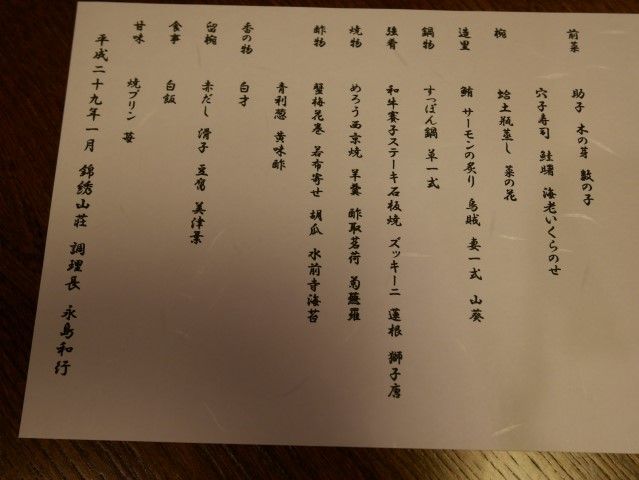 前菜 助子 木の芽 数の子
穴子寿司 鮭曙 海老いくらのせ
椀 蛤土瓶蒸し 菜の花
造里 鮪 サーモンの炙り 烏賊 妻一式 山葵
鍋物 すっぽん鍋 卓一式
強肴 和牛寨子ステーキ石板焼 ズッキーニ 蓮根 獅子唐
焼物 めろう西京焼 羊羹 酢取茗荷 菊蕪羅
酢物 蟹梅花巻 若布寄せ 胡瓜 水前寺海苔
青利葱 黄味酢
香の物 白才
留椀 赤だし 滑子 豆腐 美津葉
食事 白飯
甘味 焼プリン 苺
平成二十九年一月 錦绣山荘 調理長 永島和行